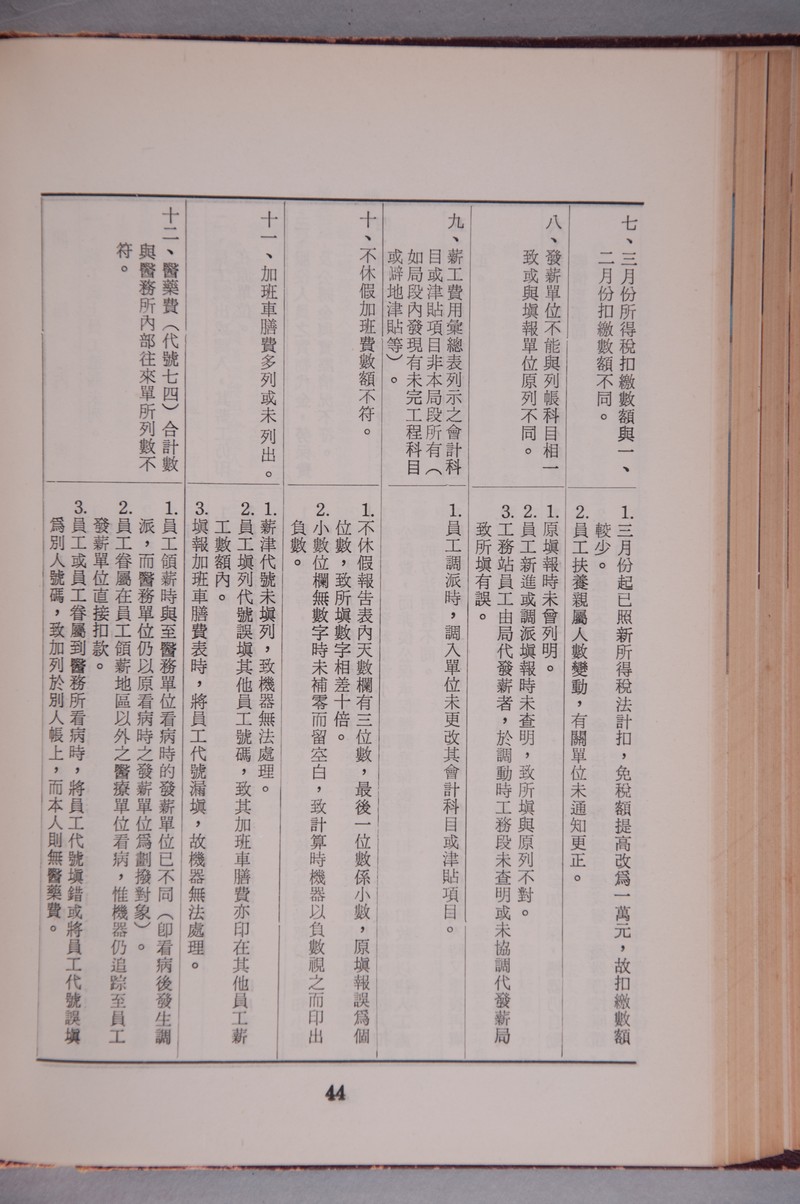 七、三月份所得稅扣繳數額與一、
二月份扣繳數額不同。
1.三月份起已照新所得稅法計扣，免稅額提高改爲一萬元，故扣繳數額
較少。
2.員工扶養親屬人數變動，有關單位未通知更正。
八、發薪單位不能與列帳科目相一
致或與塡報單位原列不同。
1.原塡報時未曾列明。
2.員工新進或調派塡報時未查明，致所塡與原列不對。
3.工務站員工由局代發薪者，於調動時工務段未查明或未協調代發薪局
致所塡有誤。
九、薪工費用彙總表列示之會計科
目或津貼項目非本局段所有（
如局段內發現有未完工程科目
或僻地津貼等）。
1.員工調派時，調入單位未更改其會計科目或津貼項目。
十、不休假加班費數額不符。
1.不休假報吿表內天數欄有三位數，最後一位數係小數，原塡報誤爲個
位數，致所塡數字相差十倍。
2.小數位欄無數字時未補零而留空白，致計算時機器以負數視之而印出
負數。
十一、加班車膳費多列或未列出。
1.薪津代號未塡列，致機器無法處理。
2.員工塡列代號誤塡其他員工號碼，致其加班車膳費亦印在其他員工薪
工數額內。
3.塡報加班車膳費表時，將員工代號漏塡，故機器無法處理。
十二、醫藥費（代號七四）合計數
與醫務所內部往來單所列數不
符。
1.員工領薪時與至醫務單位看病時的發薪單位已不同（卽看病後發生調
派，而醫務單位仍以原看病時之發薪單位爲劃撥對象）。
2.員工眷屬在員工領薪地區以外之醫療單位看病，惟機器仍追踪至員工
發薪單位直接扣款。
3.員工或員工眷屬到醫務所看病時，將員工代號塡錯或將員工代號誤塡
爲別人號碼，致加列於別人帳上，而本人則無醫藥費。
44